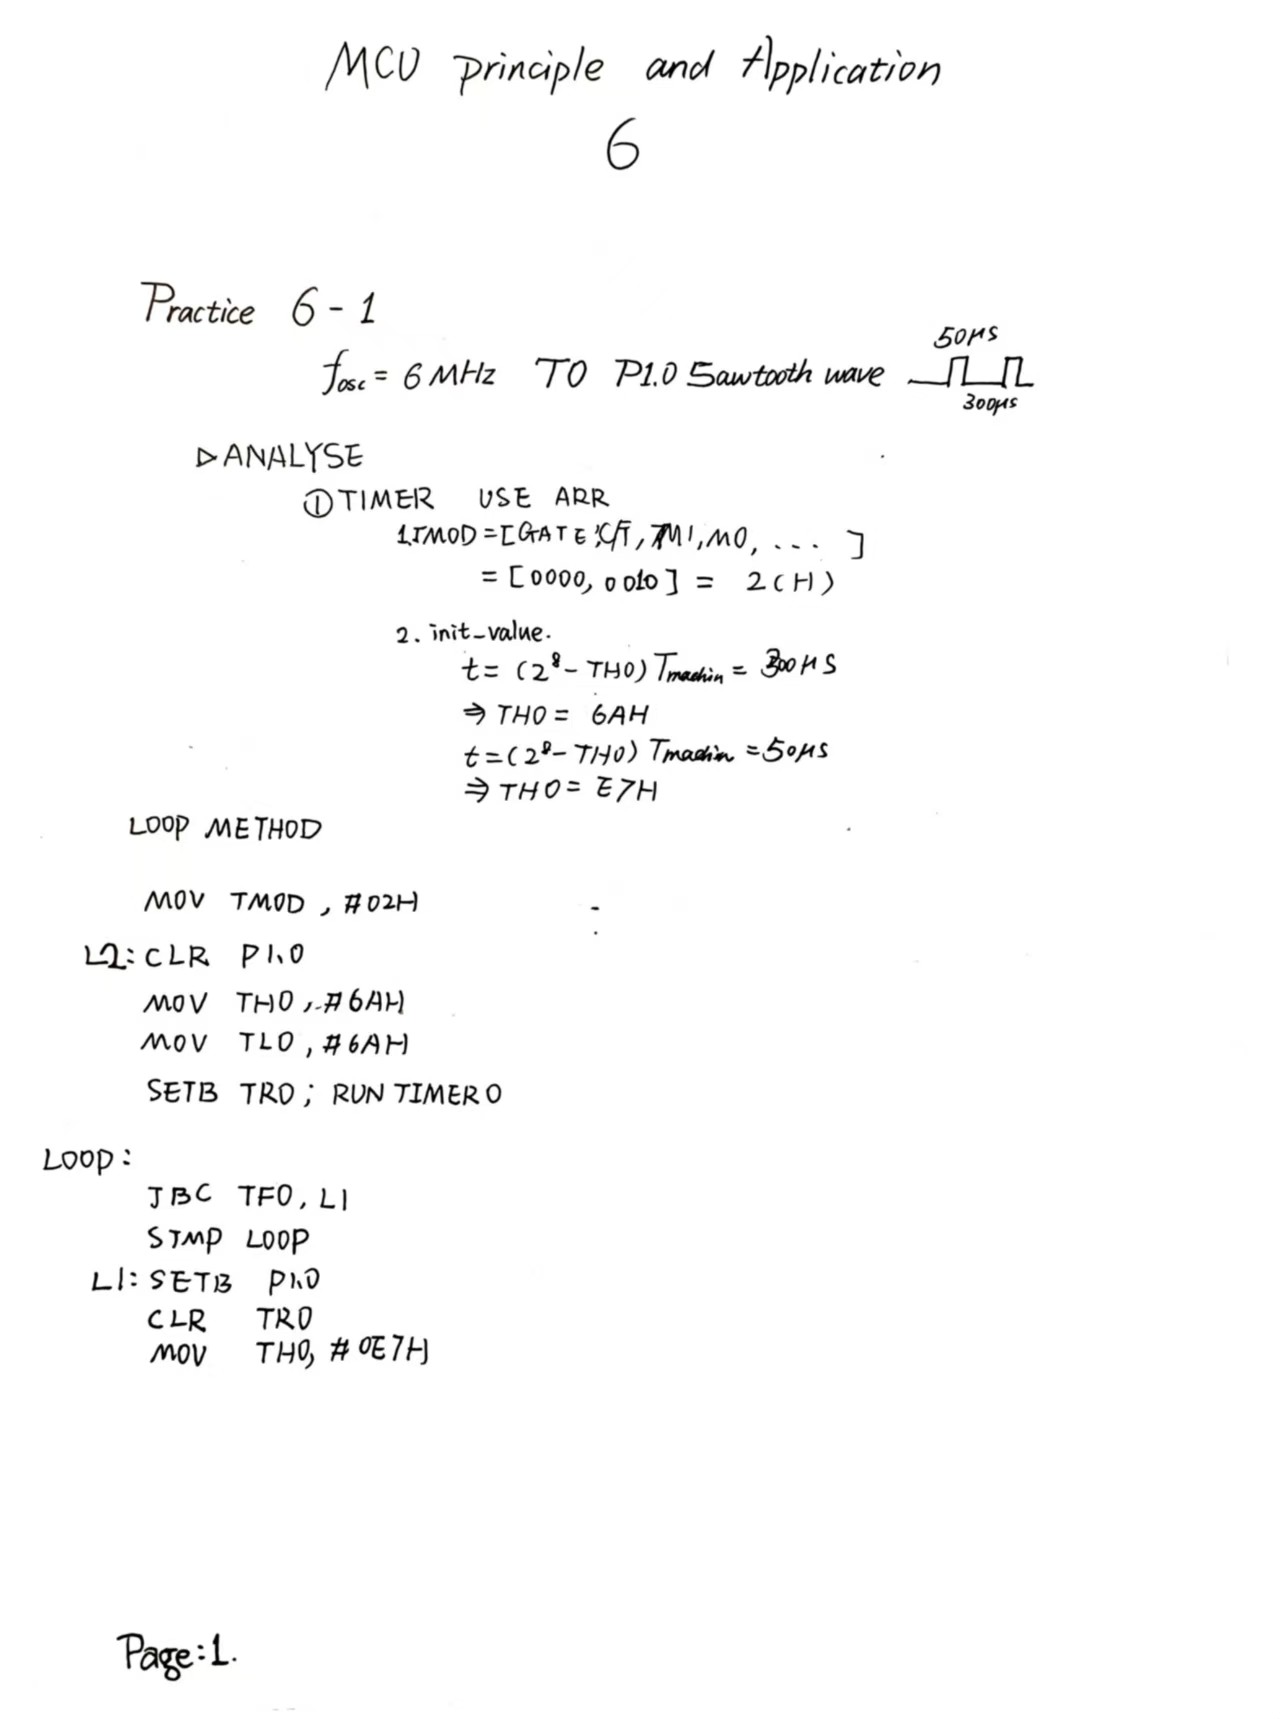 MCU principle and Application
6
Practice 6-1
50μs
fosc = 6 MHz T0 P1.0 Sawtooth wave
300μs
▷ANALYSE
① TIMER USE ARR
1.TMOD = [GATE, C/T̅, M1, M0, ... ]
= [0000, 0010] = 2(H)
2. init_value.
t = (2⁸ - TH0) Tmachin = 300μs
⇒ TH0 = 6AH
t = (2⁸ - TH0) Tmachin = 50μs
⇒ TH0 = E7H
LOOP METHOD
MOV TMOD, #02H
L2: CLR P1.0
MOV TH0, #6AH
MOV TL0, #6AH
SETB TR0; RUN TIMER 0
LOOP:
JBC TF0, L1
SJMP LOOP
L1: SETB P1.0
CLR TR0
MOV TH0, #0E7H
Page:1.